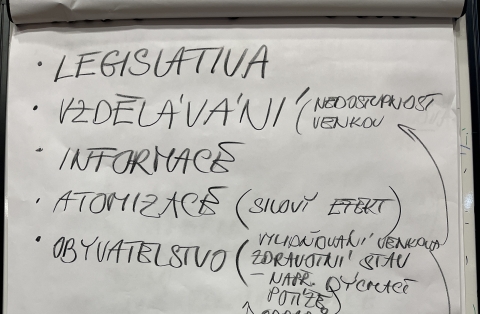 · LEGISLATIVA
· VZDĚLÁVÁNÍ (NEDOSTUPNOST
VENKOV
· INFORMACĚ
· ATOMIZACĚ (SILOVÝ EFEKT)
· OBYVATELSTVO (VYLIDŇOVÁNÍ VENKOVA
ZDRAVOTNÍ STAV
– NAPŘ. DÝCHACÍ
POTÍŽE